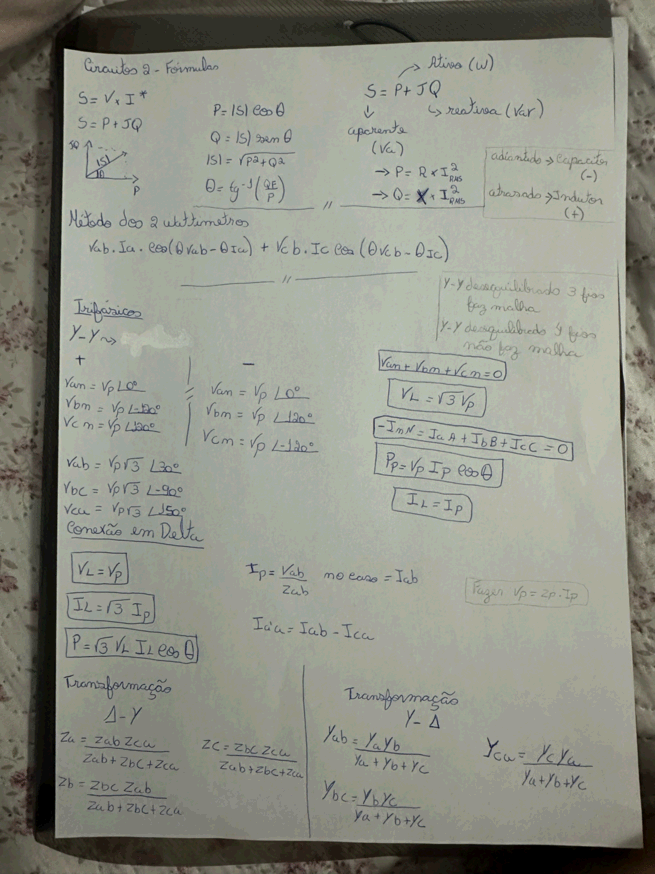 Circuitos 2 - Fórmulas
S = V x I*
S = P + JQ
JQ
|S|
θ
P
P = |S| cos θ
Q = |S| sen θ
|S| = √P² + Q²
θ = tg⁻¹ (QE/P)
→ Ativa (W)
S = P + JQ
→ reativa (Var)
aparente
(Va)
→ P = R x I²RMS
→ Q = X x I²RMS
adiantado → Capacitor
(-)
atrasado → Indutor
(+)
//
Método dos 2 wattímetros
Vab . Ia . cos(θVab - θIa) + Vcb . Ic cos (θVcb - θIc)
//
Y-Y desequilibrado 3 fios
faz malha
Y-Y desequilibrado 4 fios
não faz malha
Trifásicos
Y-Y
+
Van = Vp∠0°
Vbn = Vp∠-120°
Vcn = Vp∠120°
Vab = Vp√3 ∠30°
Vbc = Vp√3 ∠-90°
Vca = Vp√3 ∠150°
-
Van = Vp ∠0°
Vbn = Vp ∠120°
Vcn = Vp ∠-120°
Van + Vbn + Vcn = 0
VL = √3 Vp
-InN = IaA + IbB + IcC = 0
Pp = Vp Ip cos θ
IL = Ip
Conexão em Delta
VL = Vp
IL = √3 Ip
P = √3 VL IL cos θ
Ip = Vab/Zab no caso = Iab
Ia'a = Iab - Ica
Fazer Vp = Zp . Ip
Transformação
Δ-Y
Za = Zab Zca / Zab + Zbc + Zca
Zc = Zbc Zca / Zab + Zbc + Zca
Zb = Zbc Zab / Zab + Zbc + Zca
Transformação
Y-Δ
Yab = YaYb / Ya + Yb + Yc
Yca = YcYa / Ya + Yb + Yc
Ybc = YbYc / Ya + Yb + Yc